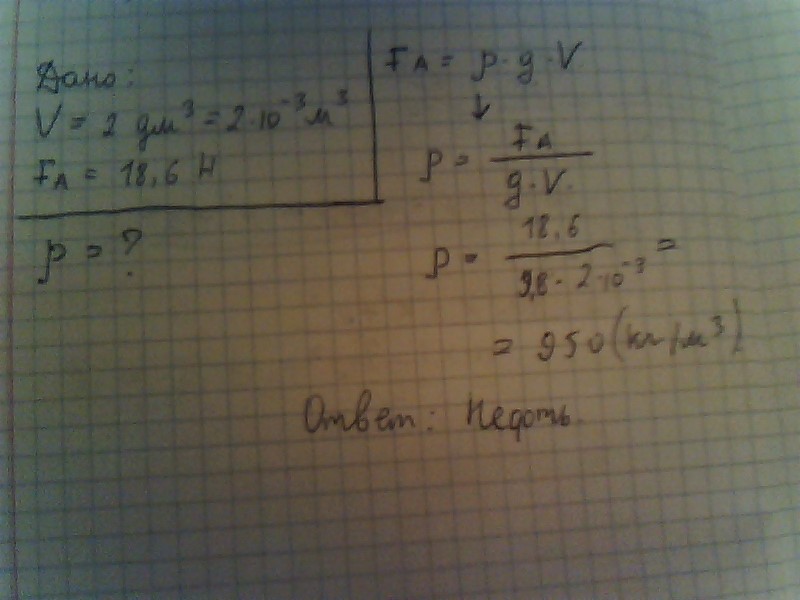 Дано:
V = 2 дм³ = 2·10⁻³ м³
FA = 18,6 Н
ρ = ?
FA = ρ·g·V
↓
ρ = FA / g·V.
ρ = 18,6 / 9,8·2·10⁻³ =
= 950 (кг/м³)
Ответ: Нефть.